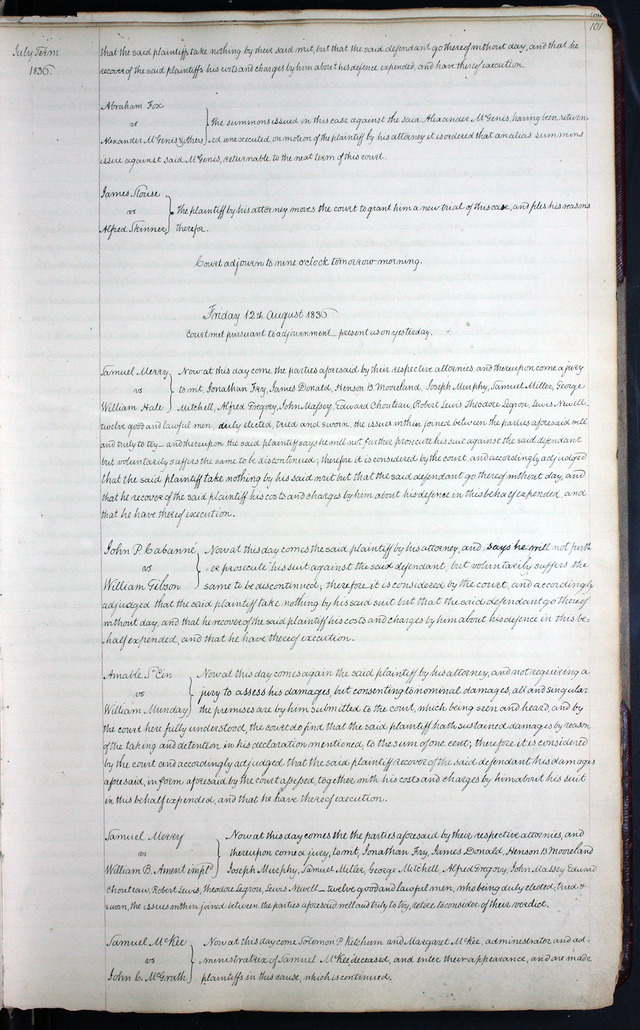 101
July Term
1836.
that the said plaintiffs take nothing by their said writ, but that the said defendant go thereof without day, and that he
recover of the said plaintiffs his costs and charges by him about his defence expended, and have thereof execution.
Abraham Fox
vs
Alexander McGenis & others
the summons issued in this case against the said Alexander McGenis, having been return-
ed unexecuted, on motion of the plaintiff by his attorney it is ordered that an alias summons
issue against said McGenis, returnable to the next term of this court.
James Rouse
vs
Alfred Skinner
the plaintiff by his attorney moves the court to grant him a new trial of this case, and files his reasons
therefor.
Court adjourn to nine o'clock tomorrow morning.
Friday 12th August 1836
Court met pursuant to adjournment present as on yesterday.
Samuel Merry
vs
William Hale
Now at this day come the parties aforesaid by their respective attornies, and thereupon come a jury
to wit, Jonathan Fry, James Donald, Henson B. Mooreland, Joseph Murphy, Samuel Miller, George
Mitchell, Alfred Gregory, John Massey, Edward Chouteau, Robert Lewis Theodore Legrow, Lewis Newell
twelve good and lawful men, duly elected, tried and sworn, the issues within joined between the parties aforesaid well
and truly to try and thereupon the said plaintiff says he will not further prosecute his suit against the said defendant
but voluntarily suffers the same to be discontinued; therefore it is considered by the court, and accordingly adjudged
that the said plaintiff take nothing by his said writ but that the said defendant go thereof without day, and
that he recover of the said plaintiff his costs and charges by him about his defence in this behalf expended, and
that he have thereof execution.
John P. Cabanné
vs
William Gibson
Now at this day comes the said plaintiff by his attorney, and says he will not furth
er prosicute his suit against the said defendant, but voluntarily suffers the
same to be discontinued; therefore it is considered by the court, and accordingly
adjudged that the said plaintiff take nothing by his said suit but that the said defendant go thereof
without day, and that he recover of the said plaintiff his costs and charges by him about his defence in this be-
half expended, and that he have thereof execution.
Amable St Cin
vs
William Munday
Now at this day comes again the said plaintiff by his attorney, and not requiring a
jury to assess his damages, but consenting to nominal damages, all and singular
the premises are by him submitted to the court, which being seen and heard, and by
the court here fully understood, the court do find that the said plaintiff hath sustained damages by reason
of the taking and detention in his declaration mentioned, to the sum of one cent; therefore it is considered
by the court and accordingly adjudged that the said plaintiff recover of the said defendant his damages
aforesaid, in form aforesaid by the court assessed, together with his costs and charges by him about his suit
in this behalf expended, and that he have thereof execution.
Samuel Merry
vs
William B. Ament impld
Now at this day comes the the parties aforesaid by their respective attornies, and
thereupon come a jury, to wit, Jonathan Fry, James Donald, Henson B Mooreland
Joseph Murphy, Samuel Miller, George Mitchell, Alfred Gregory, John Massey Edward
Chouteau, Robert Lewis, Theodore Legrow, Lewis Newell twelve good and lawful men, who being duly elected, tried &
sworn, the issues within joined between the parties aforesaid well and truly to try, retire to consider of their verdict.
Samuel McKee
vs
John C. McGrath
Now at this day come Solomon P. Ketchum and Margaret McKee, administrator and ad-
ministratrix of Samuel McKee deceased, and enter their appearance, and are made
plaintiffs in this cause, which is continued.